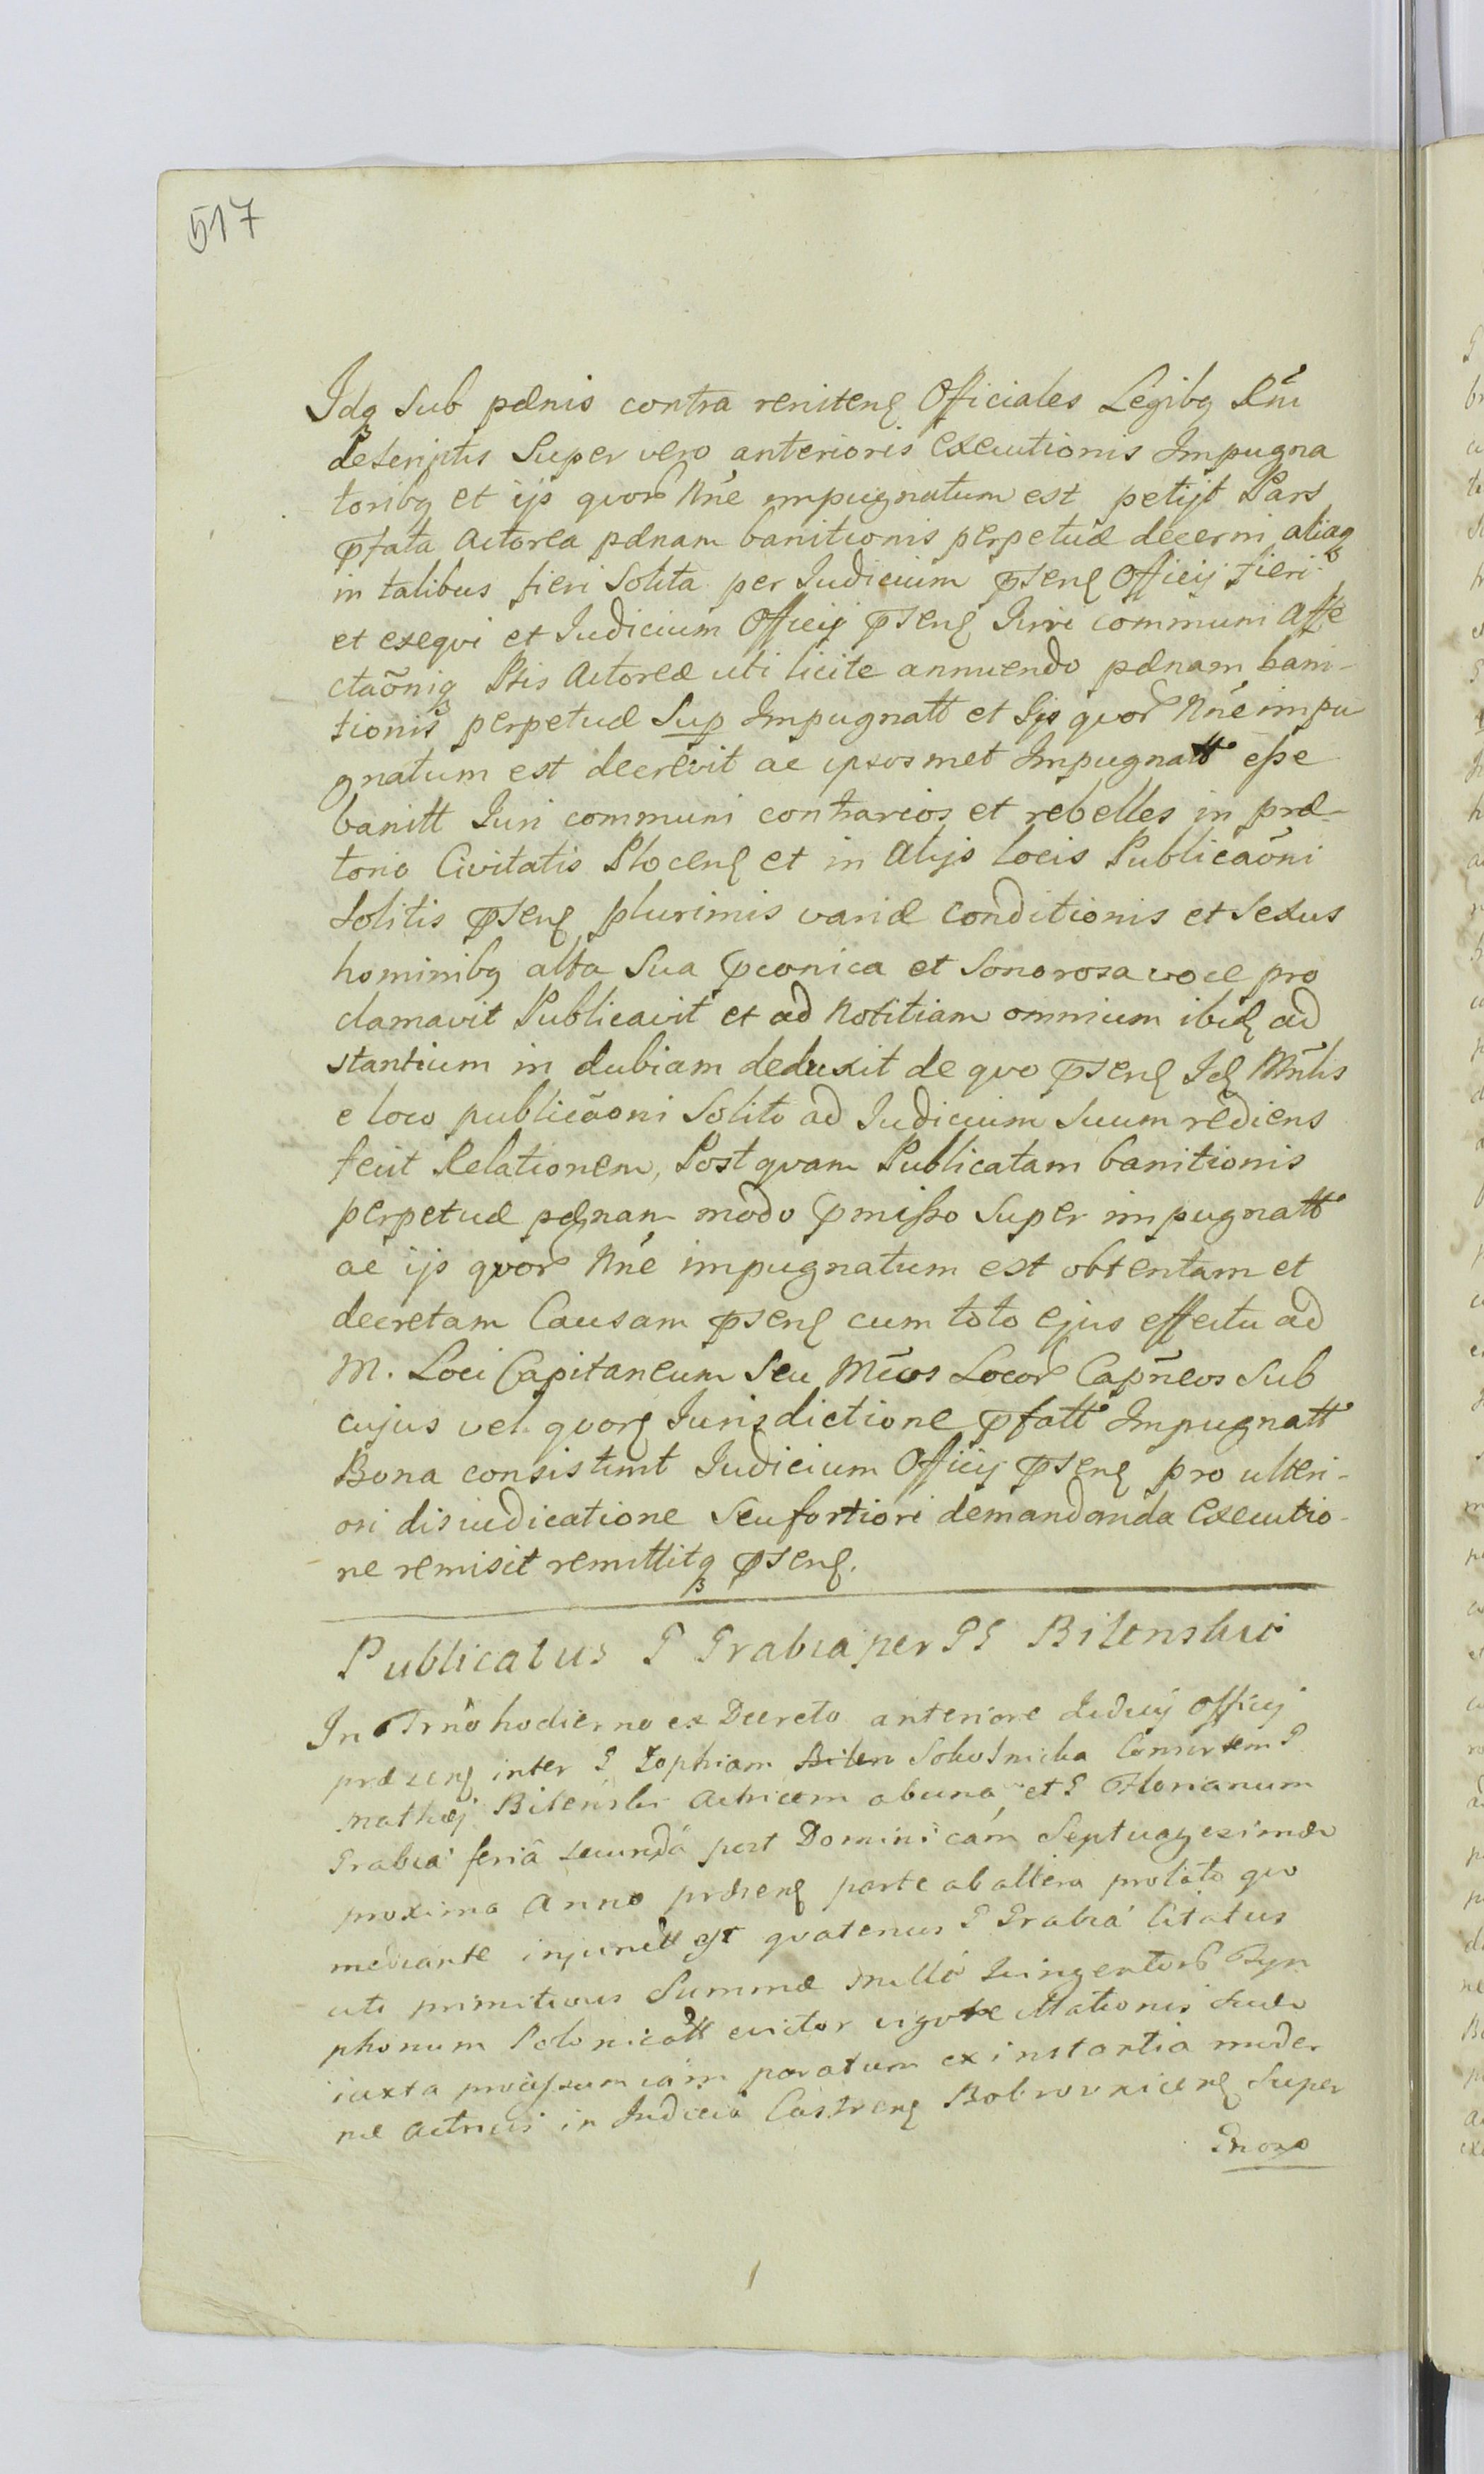 517
Idq Sub pænis contra renitenʠ Officiales Legibq Rni
descriptis Super vero anterioris executionis Impugna
toribq et ijs quor Nne impugnatum est petijt Pars
pfata Actorea pænam banitionis perpetuæ decerni aliaq
in talibus fieri Solita per Iudicium psenʠ Officij fieri
et exequi et Iudicium Officij psenʠ Iuri communi Affe
ctaõniq Ptis Actoreæ uti licite annuendo pænam bani-
tionis perpetuæ Sup Impugnatt et Ijs quor Nne impu
gnatum est decrevit ac ipsosmet Impugnatt esse
banitt Iuri communi contrarios et rebelles in præ-
torio Civitatis Plocenʠ et in Alijs locis Publicaõni
Solitis psenʠ plurimis variæ conditionis et Sexus
hominibq alta Sua pconica et Sonorosa voce pro
clamavit Publicavit et ad Notitiam omnium ibidʠ ad
stantium in dubiam deduxit de quo psenʠ Idʠ Mnlis
e loco publicãoni Solito ad Iudicium Suum rediens
fecit Relationem, Postquam Publicatam banitionis
perpetuæ pænam modo pmisso Super impugnatt
ac ijs quor Nne impugnatum est obtentam et
decretam Causam psenʠ cum toto ejus effectu ad
M. Loci Capitaneum Seu Mcos Locor Capñeos Sub
cujus vel quorʠ Iurisdictione pfatt Impugnatt
Bona consistunt Iudicium Officij psenʠ pro ulteri-
ori disiudicatione Seu fortiori demandanda Executio-
ne remisit remittitq psenʠ.
Publicatus G Grabia per GG Bilenskie
In Trño hodierno ex Decreto anteriore Iudicij Officij
præsenʠ inter G Zophiam Bilen Consortem G
Mathæj Bilenski Actricem ab una et G Florianum
Grabia feria secunda post Dominicam Septuagesimæ
proxima Anno præsenʠ parte ab altera prolato quo
mediante injunctt est quatenus G Grabia Citatus
uti primitivus Summæ mille quingentor Tyn
phonum Polonicatt evictor vigore Citationis Suæ
iuxta processum iam paratum ex instantia moder
næ Actricis in Iudicio Castrenʠ Bobrovnicenʠ Super